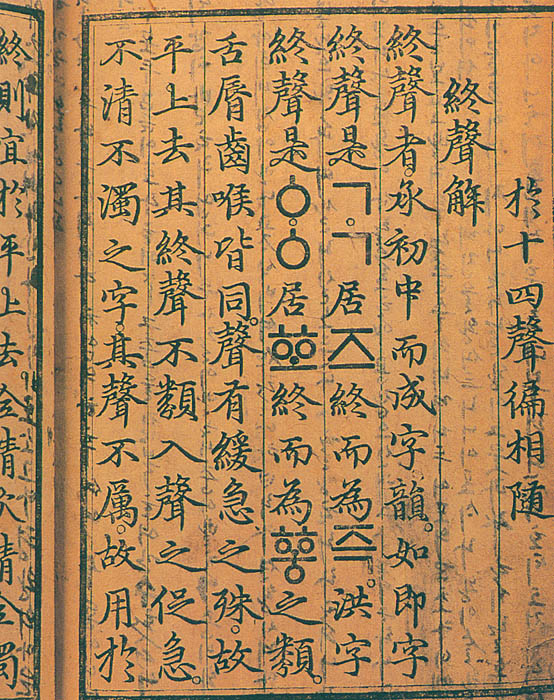 於十四聲徧相隨
終聲解
終聲者。承初中而成字韻。如即字
終聲是ㄱ。ㄱ居즈終而為즉。洪字
終聲是ㆁㆁ居ᅘᅩ終而為ᅘᅩᇰ之類。
舌脣齒喉皆同。聲有緩急之殊。故
平上去其終聲不類入聲之促急。
不清不濁之字。其聲不厲。故用於
終則宜於平上去。全清次清全濁